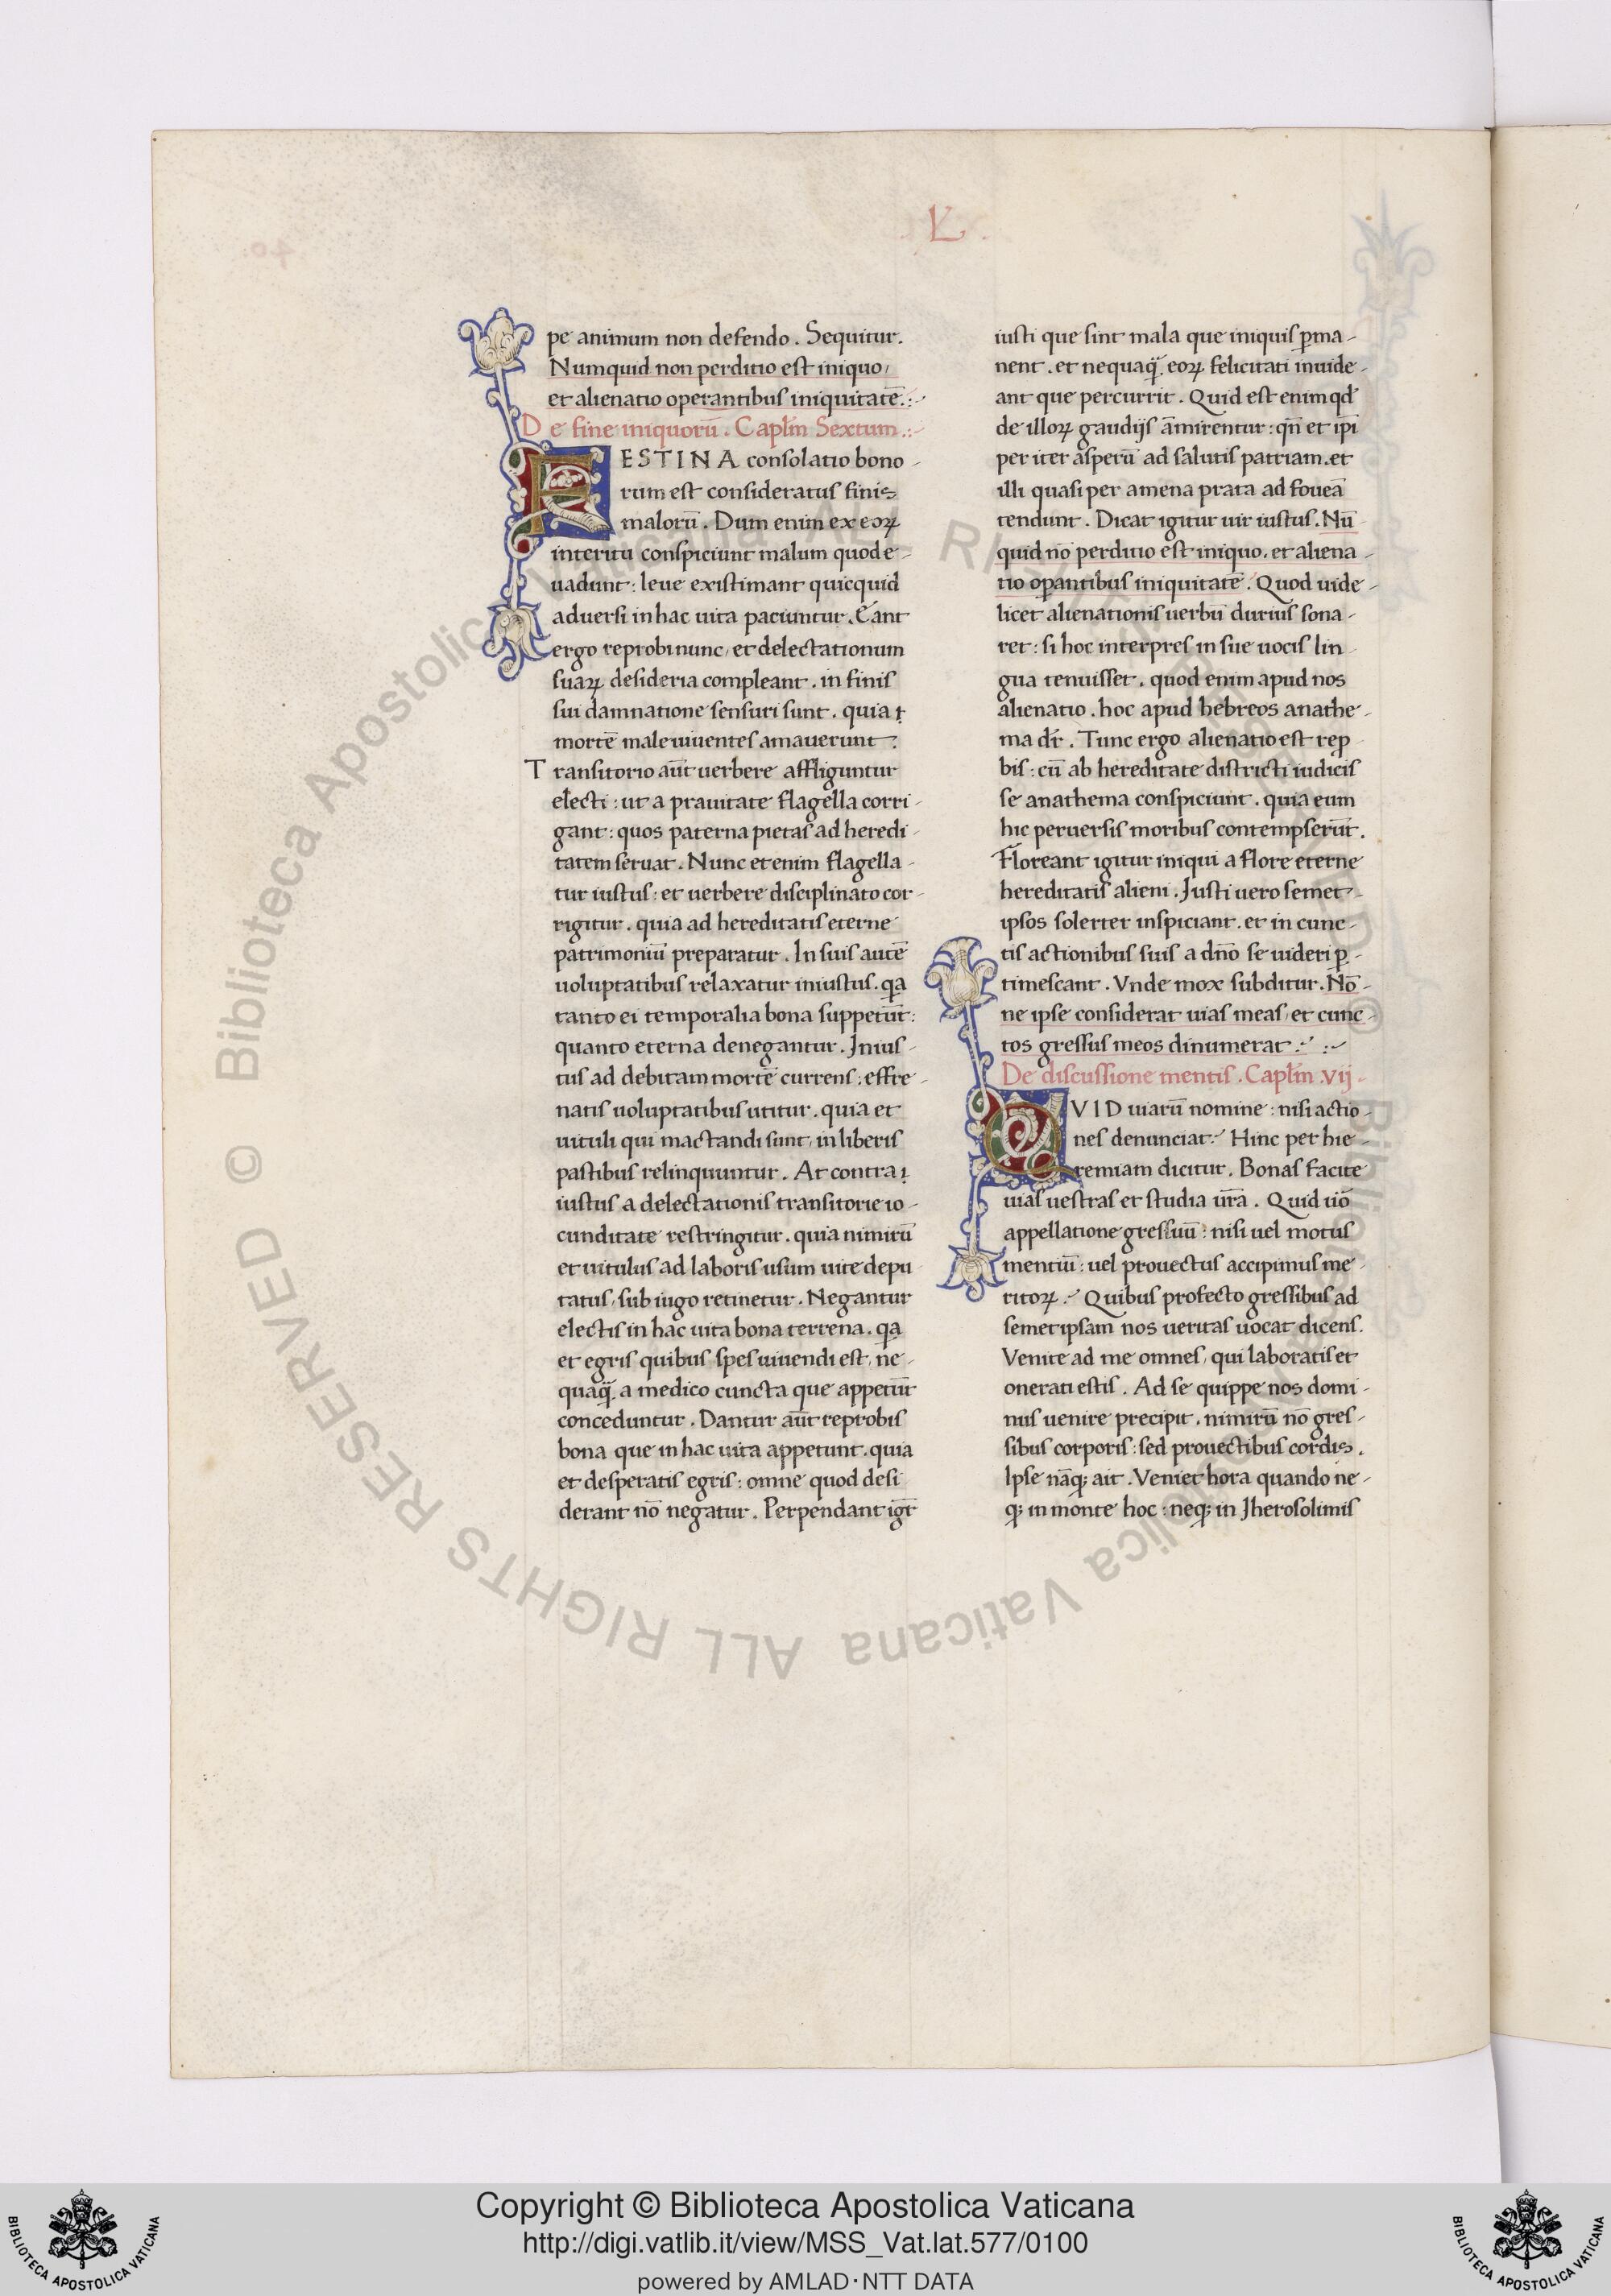 L
pe animum non defendo. Sequitur.
Numquid non perditio est iniquo,
et alienatio operantibus iniquitatē.:
De fine iniquorū. Capłm Sextum.:
RESTINA consolatio bono-
rum est consideratus finis
malorū. Dum enim ex eoꝝ
interitu conspiciunt malum quod e-
uadunt: leue existimant quicquid
aduersi in hac uita patiuntur. Eant
ergo reprobi nunc, et delectationum
suaꝝ desideria compleant. in finis
sui damnatione sensuri sunt. quia ı
mortē male uiuentes amauerunt.
Transitorio aūt uerbere affliguntur
electi: ut a prauitate flagella corri-
gant: quos paterna pietas ad heredi-
tatem seruat. Nunc etenim flagella-
tur iustus: et uerbere disciplinato cor-
rigitur. quia ad hereditatis eterne
patrimoniū preparatur. In suis autē
uoluptatibus relaxatur iniustus. qa
tanto ei temporalia bona suppetūt:
quanto eterna denegantur. Inius-
tus ad debitam mortē currens: effre-
natis uoluptatibus utitur. quia et
uituli qui mactandi sunt, in liberis
pastibus relinquuntur. At contra ı
iustus a delectationis transitorie io-
cunditate restringitur. quia nimirū
et uitulus ad laboris usum uite depu
tatus, sub iugo retinetur. Negantur
electis in hac uita bona terrena. qa
et egris quibus spes uiuendi est, ne-
quaq̄. a medico cuncta que appetūt
conceduntur. Dantur aūt reprobis
bona que in hac uita appetunt. quia
et desperatis egris: omne quod desi
derant nō negatur. Perpendant igr̄
iusti que sint mala que iniquis ꝑma-
nent. et nequaq̄. eoꝝ felicitati inuide-
ant que percurrit. Quid est enim qd̄
de illoꝝ gaudijs āmirentur: qn̄ et ip̄i
per iter asperū ad salutis patriam. et
illi quasi per amena prata ad foueā
tendunt. Dicat igitur uir iustus. Nū-
quid nō perditio est iniquo. et aliena-
tio oꝑantibus iniquitatē. Quod uide-
licet alienationis uerbū durius sona-
ret: si hoc interpres in sue uocis lin
gua tenuisset. quod enim apud nos
alienatio. hoc apud hebreos anathe-
ma dr̄. Tunc ergo alienatio est rep
bis: cū ab hereditate districti iudicis
se anathema conspiciunt. quia eum
hic peruersis moribus contempserūt.
Floreant igitur iniqui a flore eterne
hereditatis alieni. Justi uero semet-
ipsos solerter inspiciant. et in cunc-
tis actionibus suis a dn̄o se uideri ꝑ-
timescant. Vnde mox subditur. Nō-
ne ipse considerat uias meas, et cunc-
tos gressus meos dinumerat.
De discussione mentis. Capłm vij.
QVID uiarū nomine: nisi actio-
nes denunciat. Hinc per hie-
remiam dicitur. Bonas facite
uias uestras et studia ūra. Quid uō
appellatione gressuū: nisi uel motus
mentiū: uel prouectus accipimus me-
ritoꝝ. Quibus profecto gressibus ad
semetipsam nos ueritas uocat dicens.
Venite ad me omnes, qui laboratis et
onerati estis. Ad se quippe nos domi-
nus uenire precipit. nimirū nō gres-
sibus corporis: sed prouectibus cordis.
Ipse nāq; ait. Veniet hora quando ne-
q; in monte hoc: neq; in Jherosolimis
© Biblioteca Apostolica Vaticana ALL RIGHTS RESERVED
Copyright © Biblioteca Apostolica Vaticana
http://digi.vatlib.it/view/MSS_Vat.lat.577/0100
powered by AMLAD·NTT DATA
BIBLIOTECA APOSTOLICA VATICANA
BIBLIOTECA APOSTOLICA VATICANA